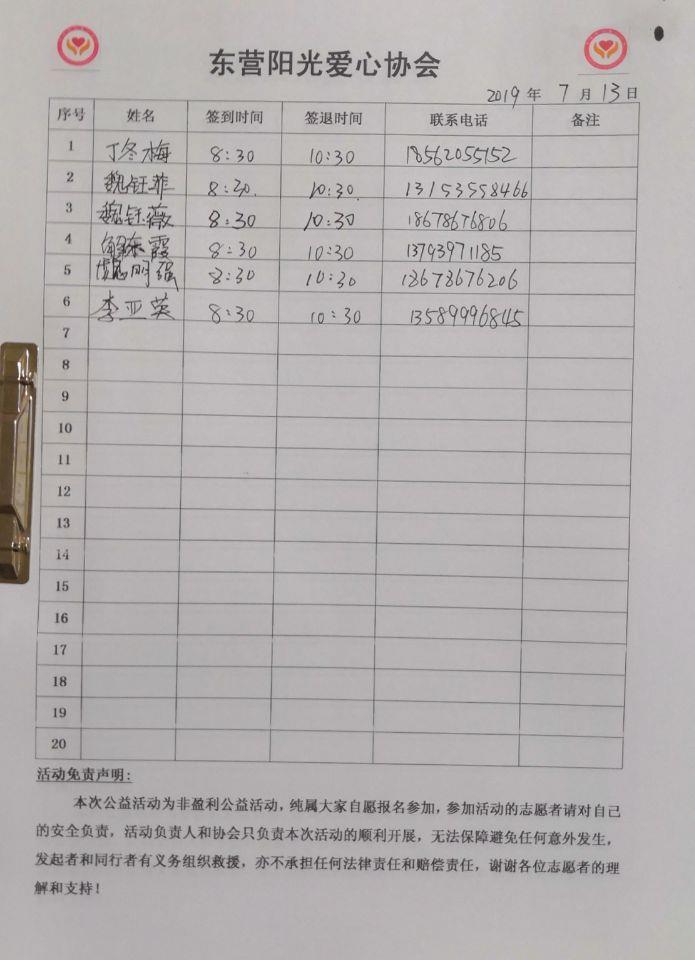 东营阳光爱心协会
2019 年 7 月 13 日
序号 姓名 签到时间 签退时间 联系电话 备注
1 丁冬梅 8:30 10:30 18562055152
2 魏钰菲 8:30. 10:30. 13153558466
3 魏钰薇 8:30 10:30 18678676806
4 解东霞 8:30 10:30 13793971185
5 魏明强 8:30 10:30 18678676206
6 李亚英 8:30 10:30 13589996845
7
8
9
10
11
12
13
14
15
16
17
18
19
20
活动免责声明:
本次公益活动为非盈利公益活动，纯属大家自愿报名参加，参加活动的志愿者请对自己
的安全负责，活动负责人和协会只负责本次活动的顺利开展，无法保障避免任何意外发生，
发起者和同行者有义务组织救援，亦不承担任何法律责任和赔偿责任，谢谢各位志愿者的理
解和支持！